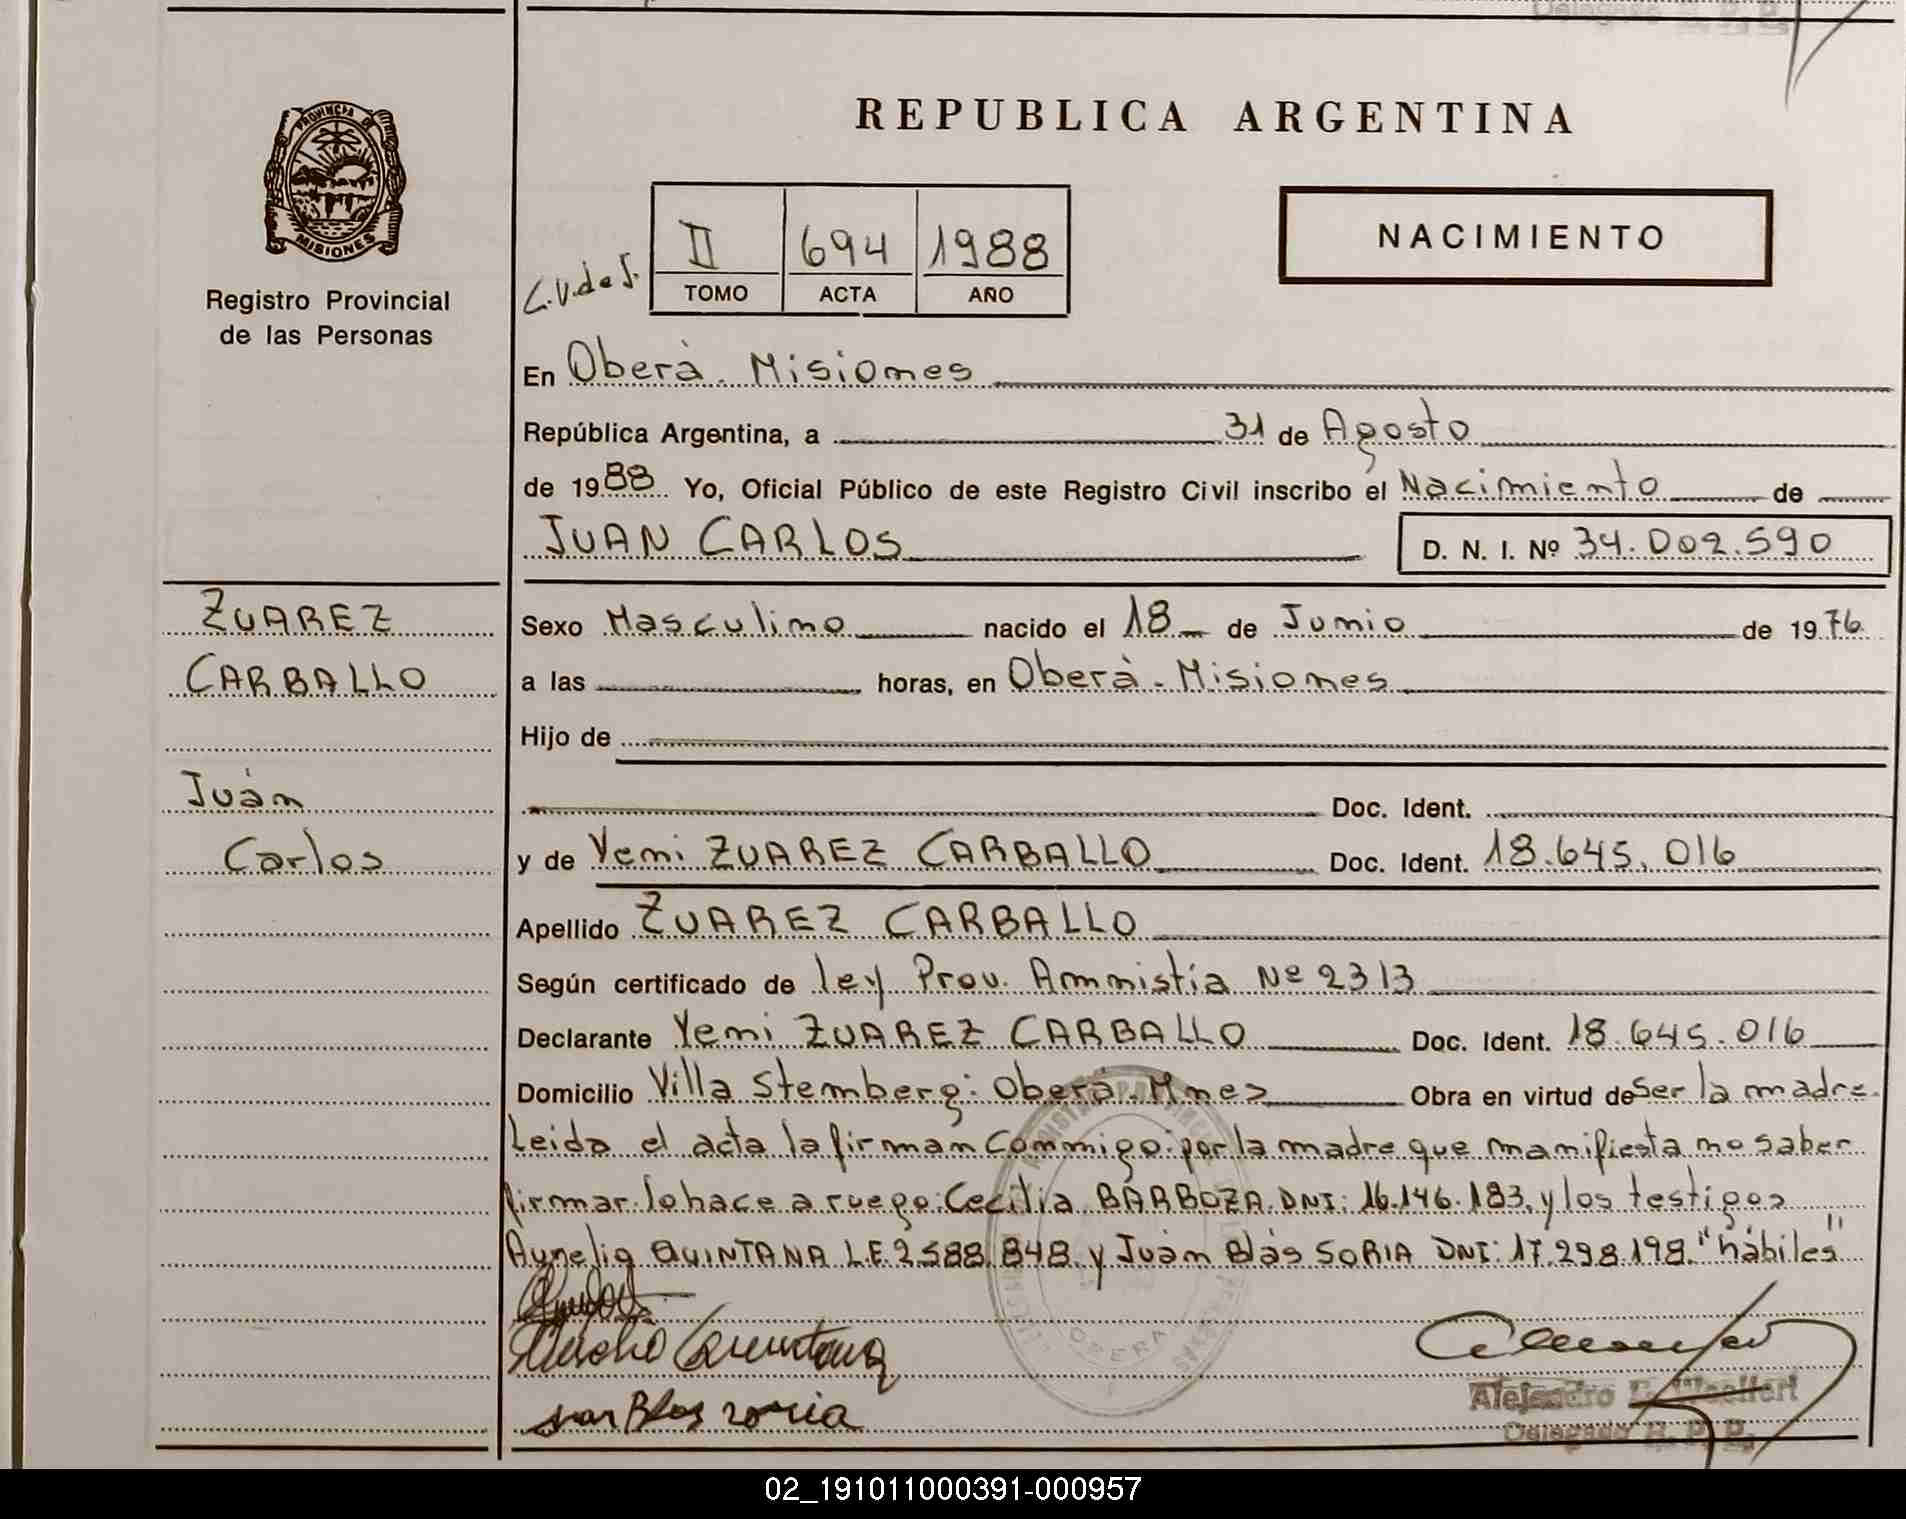 REPUBLICA ARGENTINA
PROVINCIA DE
MISIONES
Registro Provincial
de las Personas
C.V.de S.
II 694 1988
TOMO ACTA AÑO
NACIMIENTO
En Oberà. Misiones
República Argentina, a 31 de Agosto
de 1988 Yo, Oficial Público de este Registro Civil inscribo el Nacimiento de
JUAN CARLOS D. N. I. Nº 34.002.590
ZUAREZ
CARBALLO
Juàn
Carlos
Sexo Masculino nacido el 18 de Junio de 1976
a las horas, en Oberà - Misiones
Hijo de
Doc. Ident.
y de Yeni ZUAREZ CARBALLO Doc. Ident. 18.645.016
Apellido ZUAREZ CARBALLO
Según certificado de ley Prov. Amnistía Nº 2313
Declarante Yeni ZUAREZ CARBALLO Doc. Ident. 18.645.016
Domicilio Villa Stemberg: Oberà. Mnes Obra en virtud de Ser la madre.
Leida el acta la firman conmigo: por la madre que manifiesta no saber
firmar lo hace a ruego: Cecilia BARBOZA DNI: 16.146.183, y los testigos
Aurelia QUINTANA L.E. 2.588.848. y Juàn Blàs SORIA DNI: 17.298.198. "hábiles"
Quintana
Juan Blas Zoria
OBERA
Alejandro
Delegado R. P. P.
02_191011000391-000957